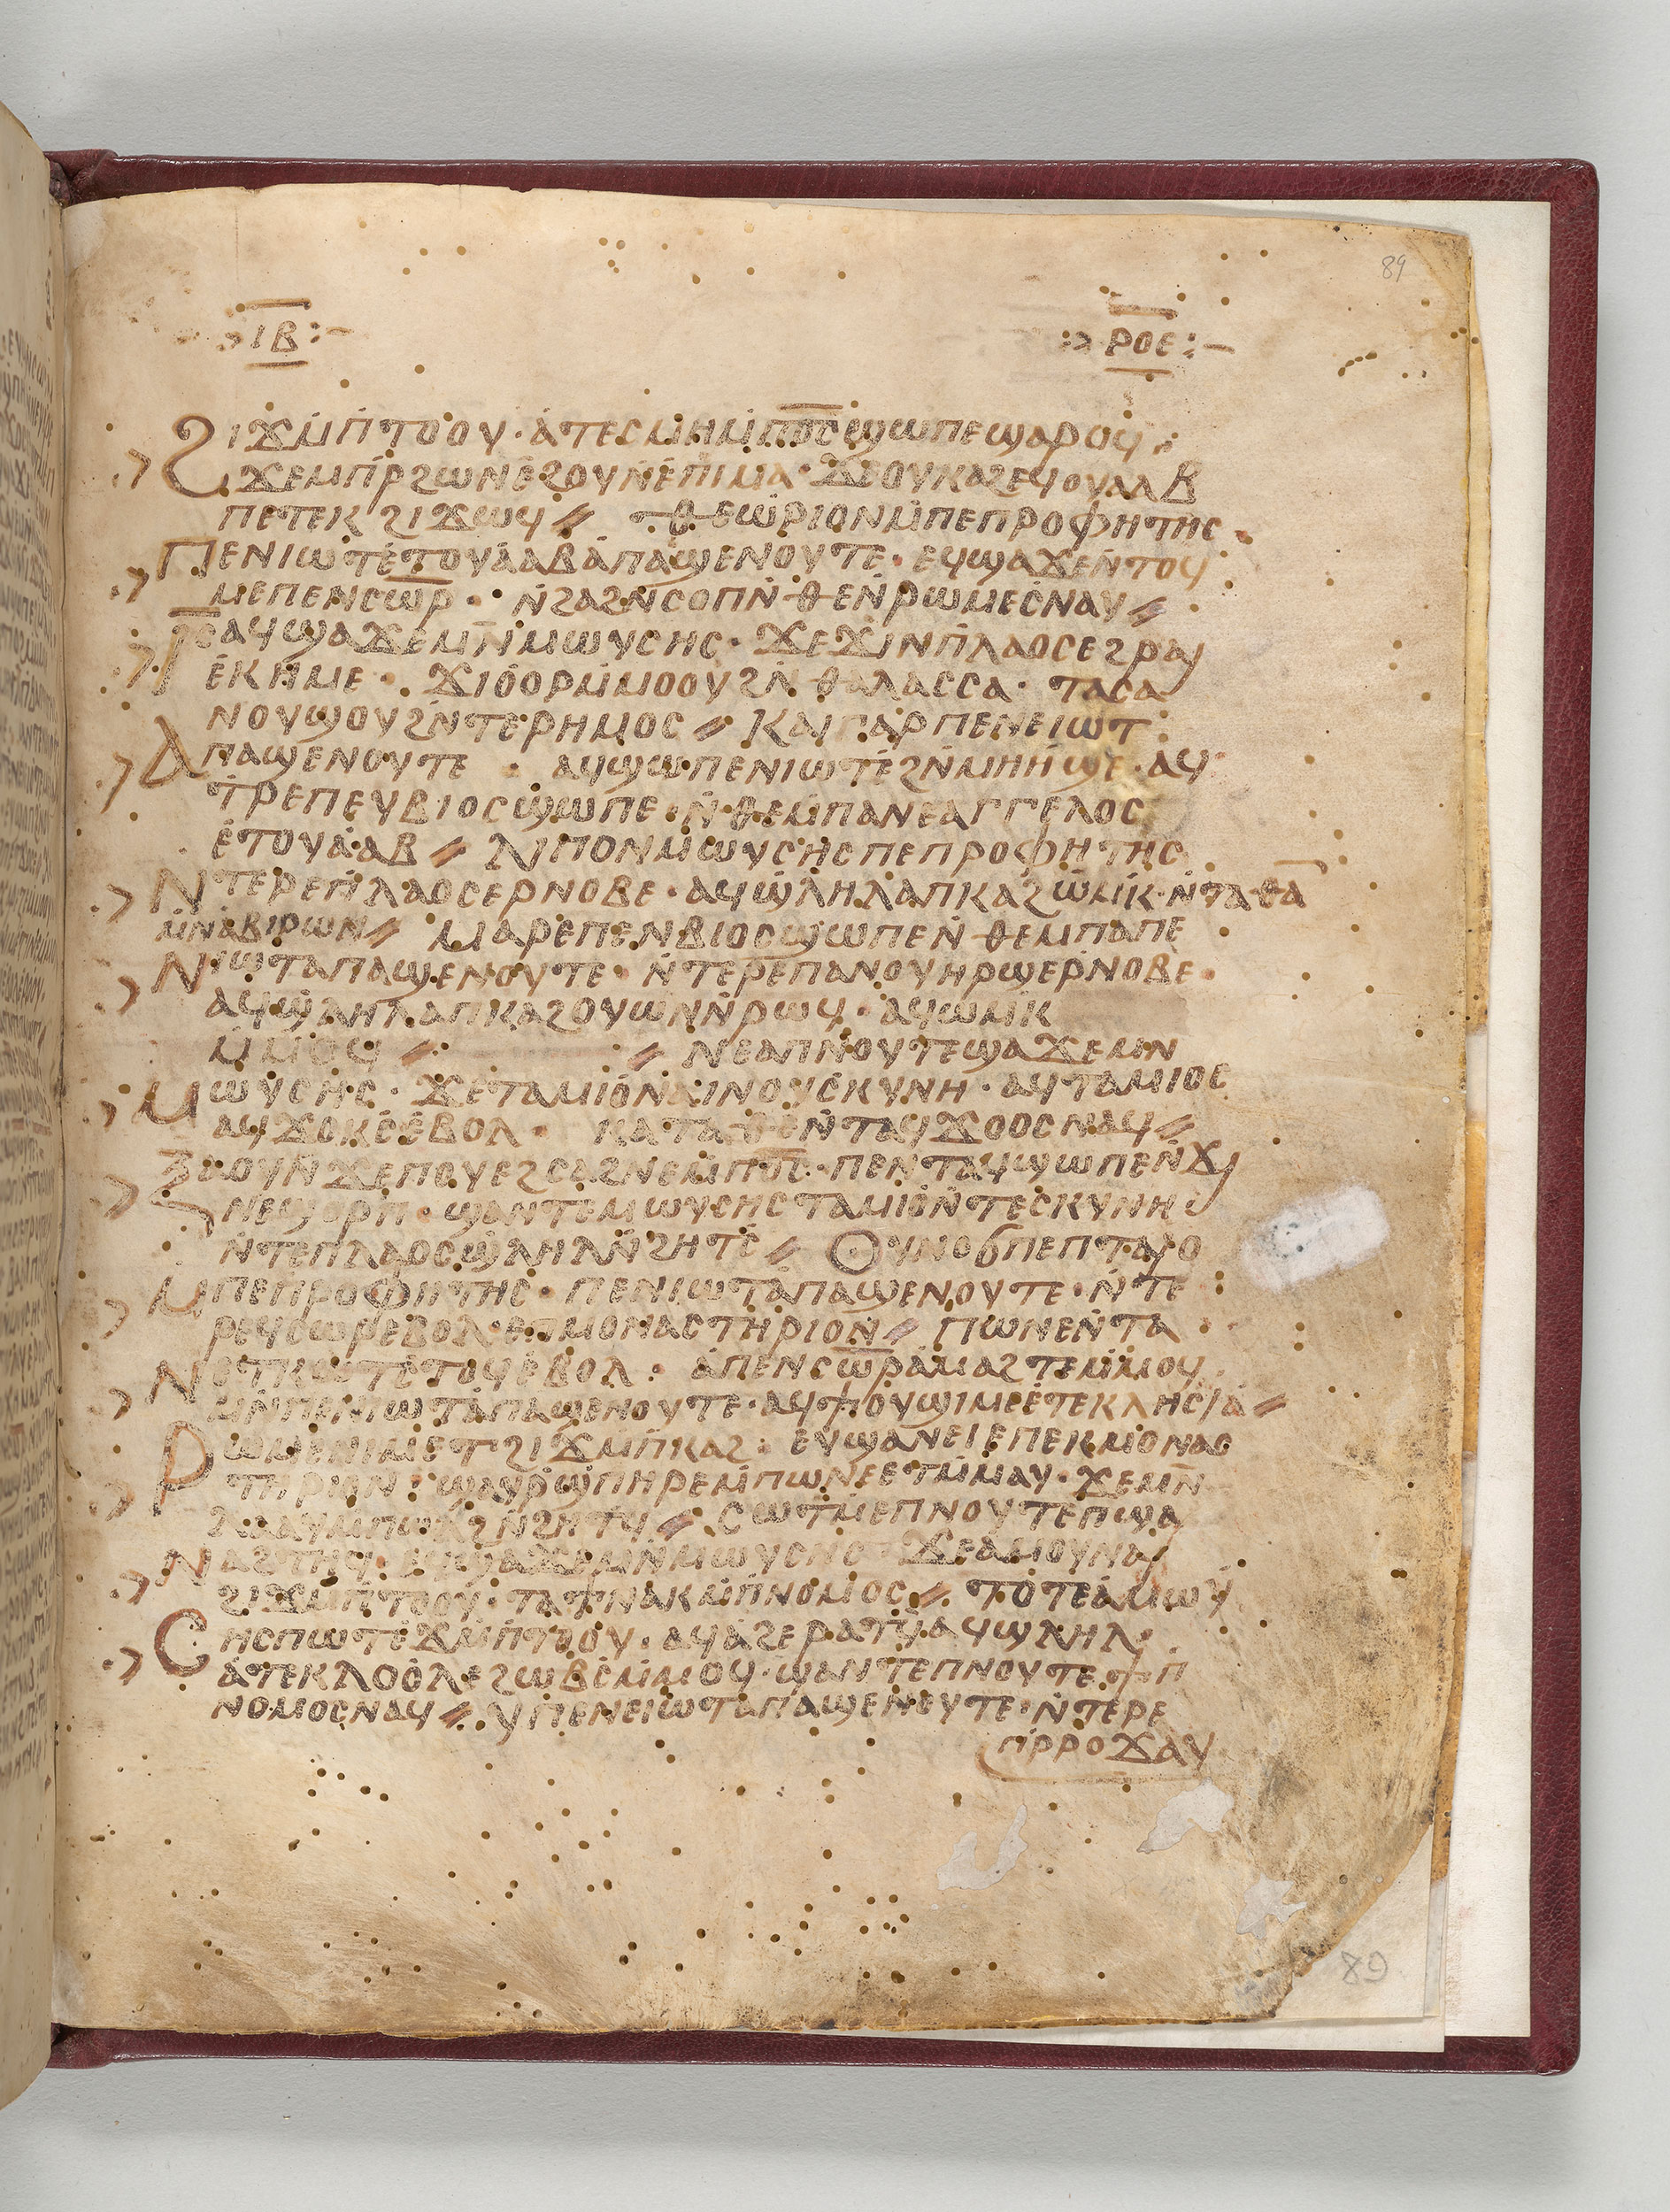 89
ⲒⲂ:– :> ⲢⲞⲈ:–
ϨⲒϪⲘⲠⲦⲞⲞⲨ· ⲀⲦⲈⲤⲘⲎⲘⲠϬⲤϢⲰⲠⲈϢⲀⲢⲞϤ:
ϪⲈⲘⲠⲢϨⲰⲚⲈϨⲞⲨⲚⲈⲠⲒⲘⲀ· ϪⲈⲞⲨⲔⲀϨⲈϤⲞⲨⲀⲀⲂ
ⲠⲈⲦⲈⲔϨⲒϪⲰϤ⸗ ⲦⲐⲈⲰⲢⲒⲞⲚⲘⲠⲈⲠⲢⲞⲪⲎⲦⲎⲤ·
ⲠⲈⲚⲒⲰⲦⲈⲦⲞⲨⲀⲀⲂⲀⲠⲀϢⲈⲚⲞⲨⲦⲈ· ⲈϤϢⲀϪⲈⲚⲦⲞϤ
ⲘⲈⲠⲈⲚⲤⲰⲢ· ⲚϨⲀϨⲚⲤⲞⲠⲚⲐⲈⲚⲢⲰⲘⲈⲤⲚⲀⲨ⸗
ⲠϬⲤⲀϤϢⲀϪⲈⲘⲚⲘⲰⲨⲤⲎⲤ· ϪⲈϪⲒⲚⲠⲖⲀⲞⲤⲈϨⲢⲀⲒ
ⲈⲔⲎⲘⲈ· ϪⲒϬⲞⲢⲘⲘⲞⲞⲨϨⲚⲐⲀⲖⲀⲤⲤⲀ· ⲦⲀⲤⲀ
ⲚⲞⲨϢⲞⲨϨⲚⲦⲈⲢⲎⲘⲞⲤ⸗ ⲔⲀⲒⲄⲀⲢⲠⲈⲚⲈⲒⲰⲦ
ⲀⲠⲀϢⲈⲚⲞⲨⲦⲈ· ⲀϤϢⲰⲠⲈⲚⲒⲰⲦⲈϨⲚⲘⲎⲎϢⲈ· ⲀϤ
ⲦⲢⲈⲠⲈⲨⲂⲒⲞⲤϢⲰⲠⲈ·ⲚⲐⲈⲘⲠⲀⲚⲈⲀⲄⲄⲈⲖⲞⲤ
ⲈⲦⲞⲨⲀⲀⲂ⸗ ⲖⲒⲠⲞⲚⲘⲰⲨⲤⲎⲤⲠⲈⲠⲢⲞⲪⲎⲦⲎⲤ
ⲚⲦⲈⲢⲈⲠⲖⲀⲞⲤⲈⲢⲚⲞⲂⲈ· ⲀϤϢⲖⲎⲖⲀⲠⲔⲀϨⲰⲘⲔ·ⲚⲦⲀⲐⲀ
ⲘⲚⲀⲂⲒⲢⲰⲚ⸗ ⲘⲀⲢⲈⲠⲈⲚⲂⲒⲞⲤϢⲰⲠⲈⲚⲐⲈⲘⲠⲀⲠⲈ
ⲚⲒⲰⲦⲀⲠⲀϢⲈⲚⲞⲨⲦⲈ· ⲚⲦⲈⲢⲈⲠⲀⲚⲞⲨⲎⲢϢⲈⲢⲚⲞⲂⲈ·
ⲀϤϢⲖⲎⲖⲀⲠⲔⲀϨⲞⲨⲰⲚⲚⲢⲰϤ· ⲀϤⲰⲘⲔ
ⲘⲘⲞϤ⸗ ⸗ ⲚⲈⲀⲠⲚⲞⲨⲦⲈϢⲀϪⲈⲘⲚ
ⲘⲰⲨⲤⲎⲤ· ϪⲈⲦⲀⲘⲒⲞⲚⲀⲒⲚⲞⲨⲤⲔⲨⲚⲎ· ⲀϤⲦⲀⲘⲒⲞⲤ
ⲀϤϪⲞⲔⲤⲈⲂⲞⲖ· ⲔⲀⲦⲀⲐⲈⲚⲦⲀϤϪⲞⲞⲤⲚⲀϤ⸗
ϪⲈⲠⲞⲨⲈϨⲤⲀϨⲚⲈⲘⲠϬⲤ· ⲠⲈⲚⲦⲀϤϢⲰⲠⲈⲚϪⲒ
ⲚⲈϢⲞⲢⲠ· ϢⲀⲚⲦⲈⲘⲰⲨⲤⲎⲤⲦⲀⲘⲒⲞⲚⲦⲈⲤⲔⲨⲚⲎ
ⲚⲦⲈⲠⲖⲀⲞⲤϢⲖⲎⲖⲚϨⲎⲦⲤ⸗ ⲞⲨⲚⲞϬⲠⲈⲠⲦⲀⲒⲞ
ⲘⲠⲈⲠⲢⲞⲪⲎⲦⲎⲤ· ⲠⲈⲚⲒⲰⲦⲀⲠⲀϢⲈⲚⲞⲨⲦⲈ· ⲚⲦⲈ
ⲢⲈϤⲤⲰⲢⲈⲂⲞⲖⲈⲠⲘⲞⲚⲀⲤⲦⲎⲢⲒⲞⲚ⸗ ⲠⲰⲚⲈⲚⲦⲀ
ⲚⲈⲦⲔⲰⲦⲤⲦⲞϤⲈⲂⲞⲖ· ⲀⲠⲈⲚⲤⲰⲢⲀⲘⲀϨⲦⲈⲘⲘⲞϤ
ⲘⲚⲠⲈⲚⲒⲰⲦⲀⲠⲀϢⲈⲚⲞⲨⲦⲈ· ⲀϤϮⲠⲞⲨϢⲒⲘⲈⲈⲦⲈⲔⲖⲎⲤⲒⲀ⸗
ⲢⲰⲘⲈⲚⲒⲘⲈⲦϨⲒϪⲘⲠⲔⲀϨ· ⲈⲨϢⲀⲚⲈⲒⲈⲠⲈⲔⲘⲞⲚⲀⲤ
ⲦⲎⲢⲒⲞⲚ· ϢⲀⲨⲢϢⲠⲎⲢⲈⲘⲠⲰⲚⲈⲈⲦⲘⲘⲀⲨ· ϪⲈⲘⲚ
ⲖⲀⲀⲨⲘⲠⲰⲖϨⲚϨⲎⲦϤ⸗ ⲤⲰⲦⲘⲈⲠⲚⲞⲨⲦⲈⲠϢⲀ
ⲚⲀϨⲦⲎϤ· ⲈϤϢⲀϪⲈⲘⲚⲘⲰⲨⲤⲎⲤ· ϪⲈⲀⲘⲞⲨⲚⲀⲒ
ϨⲒϪⲘⲠⲦⲞⲞⲨ· ⲦⲀϮⲚⲀⲔⲘⲠⲚⲞⲘⲞⲤ⸗ ⲦⲞⲦⲈⲀⲘⲰⲨ
ⲤⲎⲤⲠⲰⲦⲈϪⲘⲠⲦⲞⲞⲨ· ⲀϤⲀϨⲈⲢⲀⲦϤⲀϤϢⲖⲎⲖ·
ⲀⲦⲈⲔⲖⲞⲞⲖⲈϨⲰⲂⲤⲘⲘⲞϤ· ϢⲀⲚⲦⲈⲠⲚⲞⲨⲦⲈϮⲠ
ⲚⲞⲘⲞⲤⲚⲀϤ⸗ ⲨⲠⲈⲚⲈⲒⲰⲦⲀⲠⲀϢⲈⲚⲞⲨⲦⲈ·ⲚⲦⲈⲢⲈ
ⲠⲢⲢⲞϪⲀⲨ
89